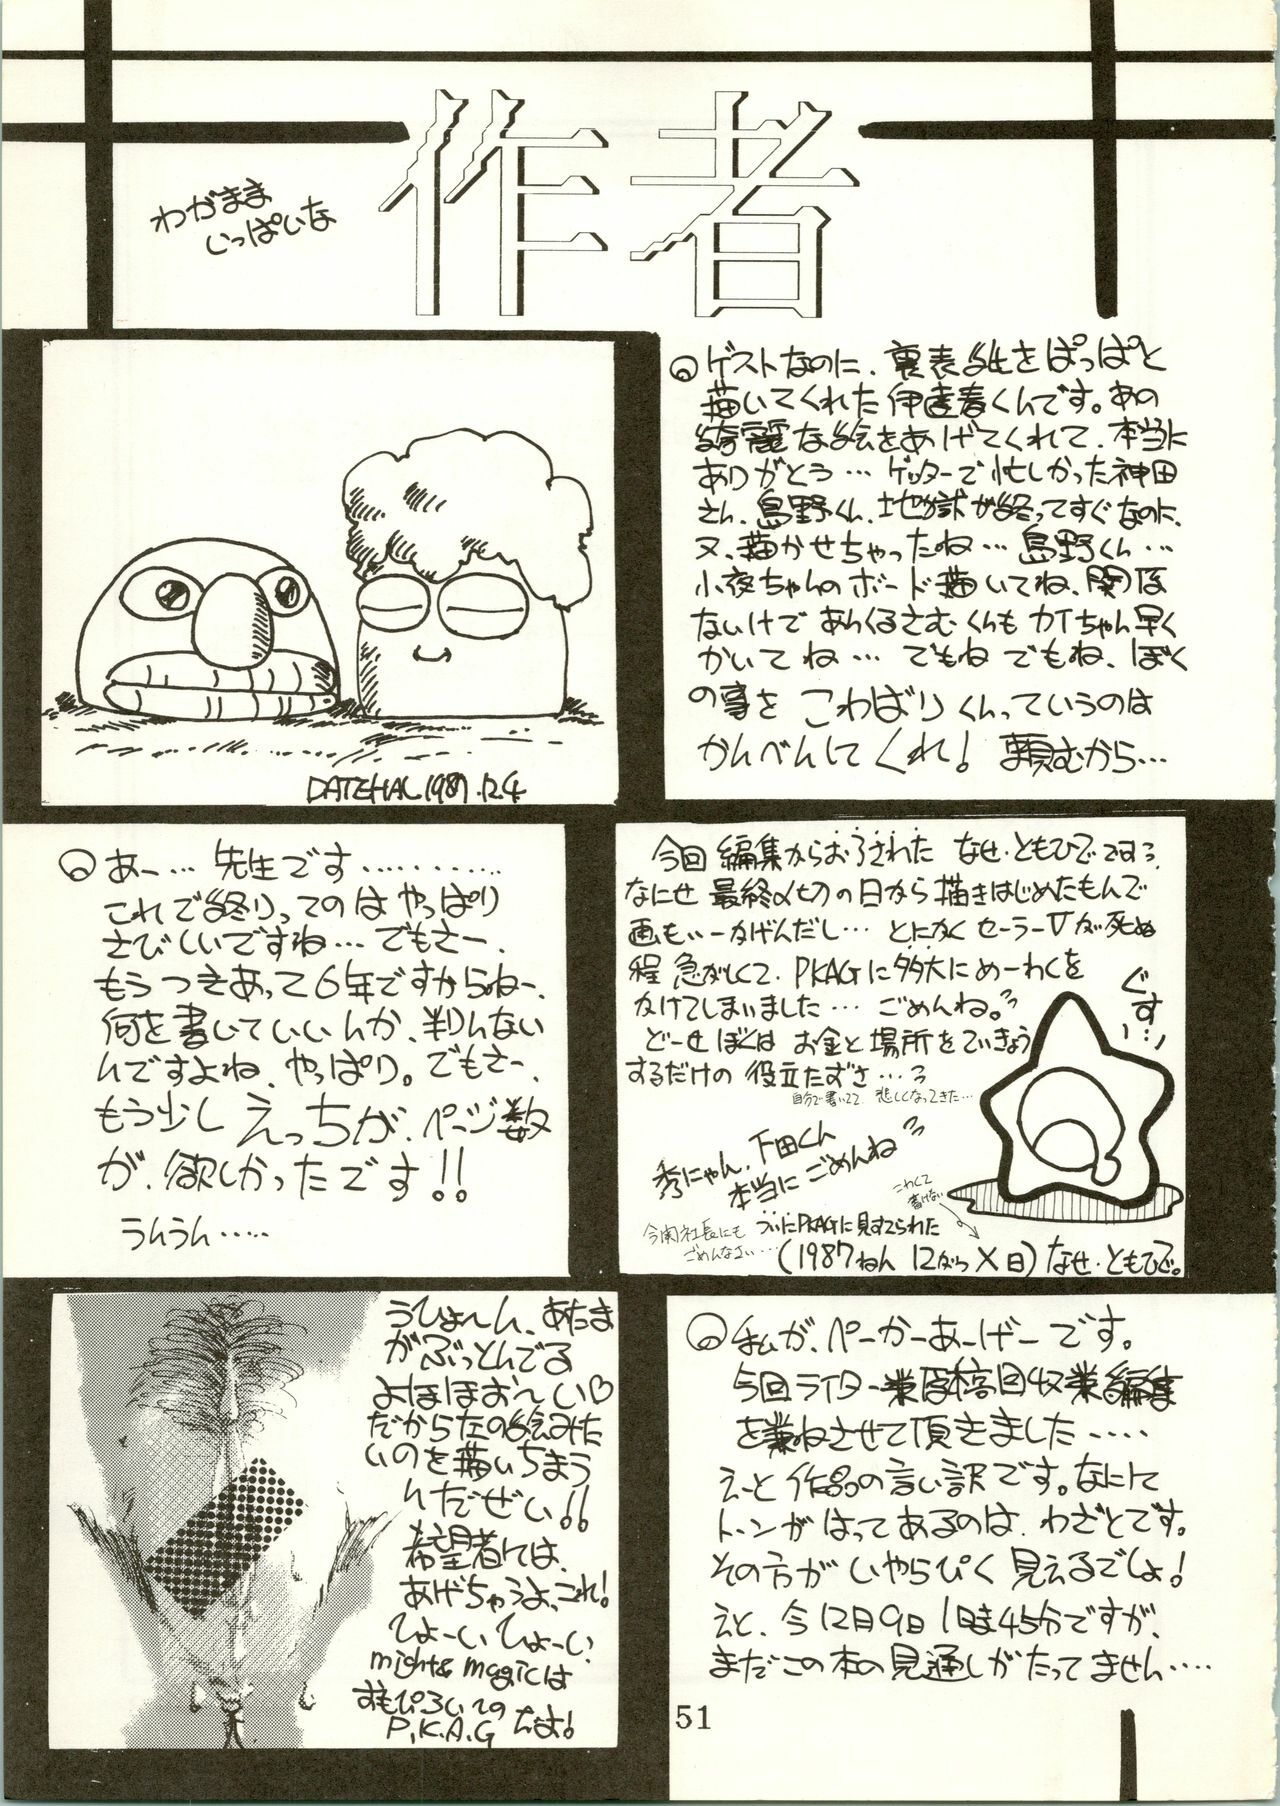 わがまま
いっぱいな
作者
DATEHAL 1987.12.4
ゲストなのに、裏表紙をぱっぱと
描いてくれた伊達春くんです。あの
綺麗な絵をあげてくれて、本当に
ありがとう… ゲッターで忙しかった神田
さん、島野くん、地獄が終ってすぐなのに、
又、描かせちゃったね… 島野くん…
小夜ちゃんのボード描いてね、関係
ないけであんくるさむくんもカイちゃん早く
かいてね… でもね でもね、ぼく
の事を こわばりくんっていうのは
かんべんしてくれ! 頼むから…
あー… 先生です………
これで終りってのは やっぱり
さびしいですね… でもさー、
もうつきあって6年ですからねー、
何を書いていいんか、判んない
んですよね、やっぱり。でもさー、
もう少し えっちが、ページ数
が、欲しかったです!!
うんうん……
今回 編集からおろされた なせ・ともひでです。
なにせ 最終〆切の日から描きはじめたもんで
画もいーかげんだし… とにかく セーラーVが死ぬ
程 急がしくて、PKAGに多大にめーわくを
かけてしまいました… ごめんね。
どーせ ぼくは お金と場所をていきょう
するだけの 役立たずさ…
自分で書いてて 悲しくなってきた…
ぐすん…
秀にゃん、下田くん
本当に ごめんね
こわくて
書けない
今南社長にも
ごめんなさい…
ついにPKAGに見すてられた
(1987ねん 12がつ X日) なせ・ともひで。
うひょ〜ん、あたま
がぶっとんでる
よほほお〜い♡
だから左の絵みた
いのを描いちまう
んだぜい!!
希望者には、
あげちゃうよ、これ!
ひょーい ひょーい、
might & magicは
おもぴろいての
P.K.A.G だよ!
私が、ぺーかーあーげーです。
今回ライター業原稿回収業編集
を兼ねさせて頂きました……
えーと 作品の言い訳です。なにして
トーンがはってあるのは、わざとです。
その方が いやらぴく 見えるでしょ!
えと、今12月9日 1時45分ですが、
まだこの本の見通しがたってません……
51